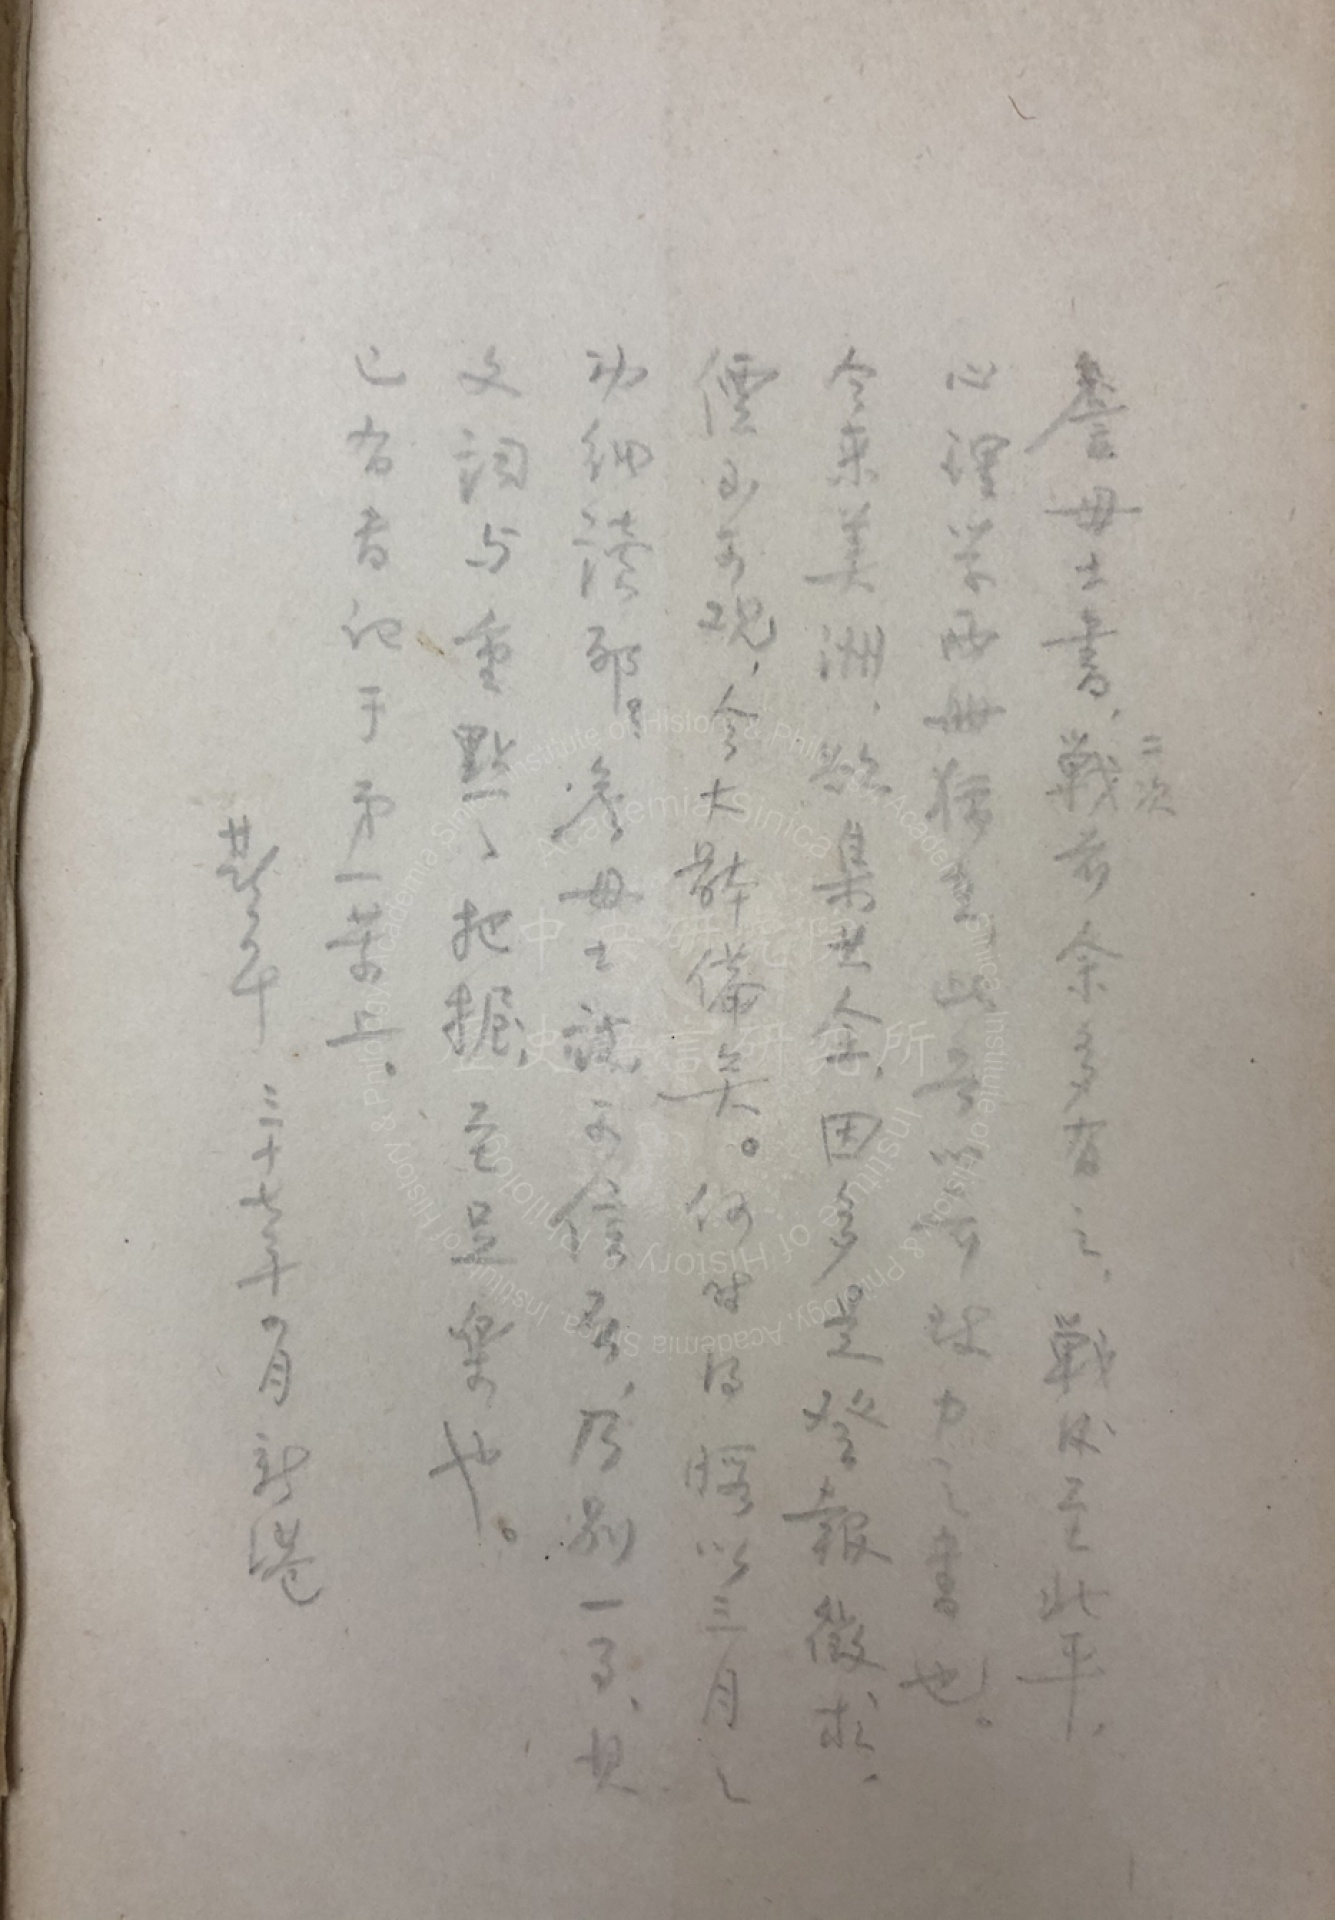 詹母士書，二次戰前余多有之，戰後至北平，
心理学兩冊猶在，此吾以前致力之書也。
今來美洲，欲集其全，因多是登報徵求，
價至可觀，今大體備矣。何時得暇以三月之
功細讀耶？詹母士誠可信否，乃別一事，其
文詞与重點之把握，至足樂也。
已有者記于第一葉上。
斯年 三十七年 月新港
中央研究院
歷史語言研究所
Institute of History & Philology, Academia Sinica